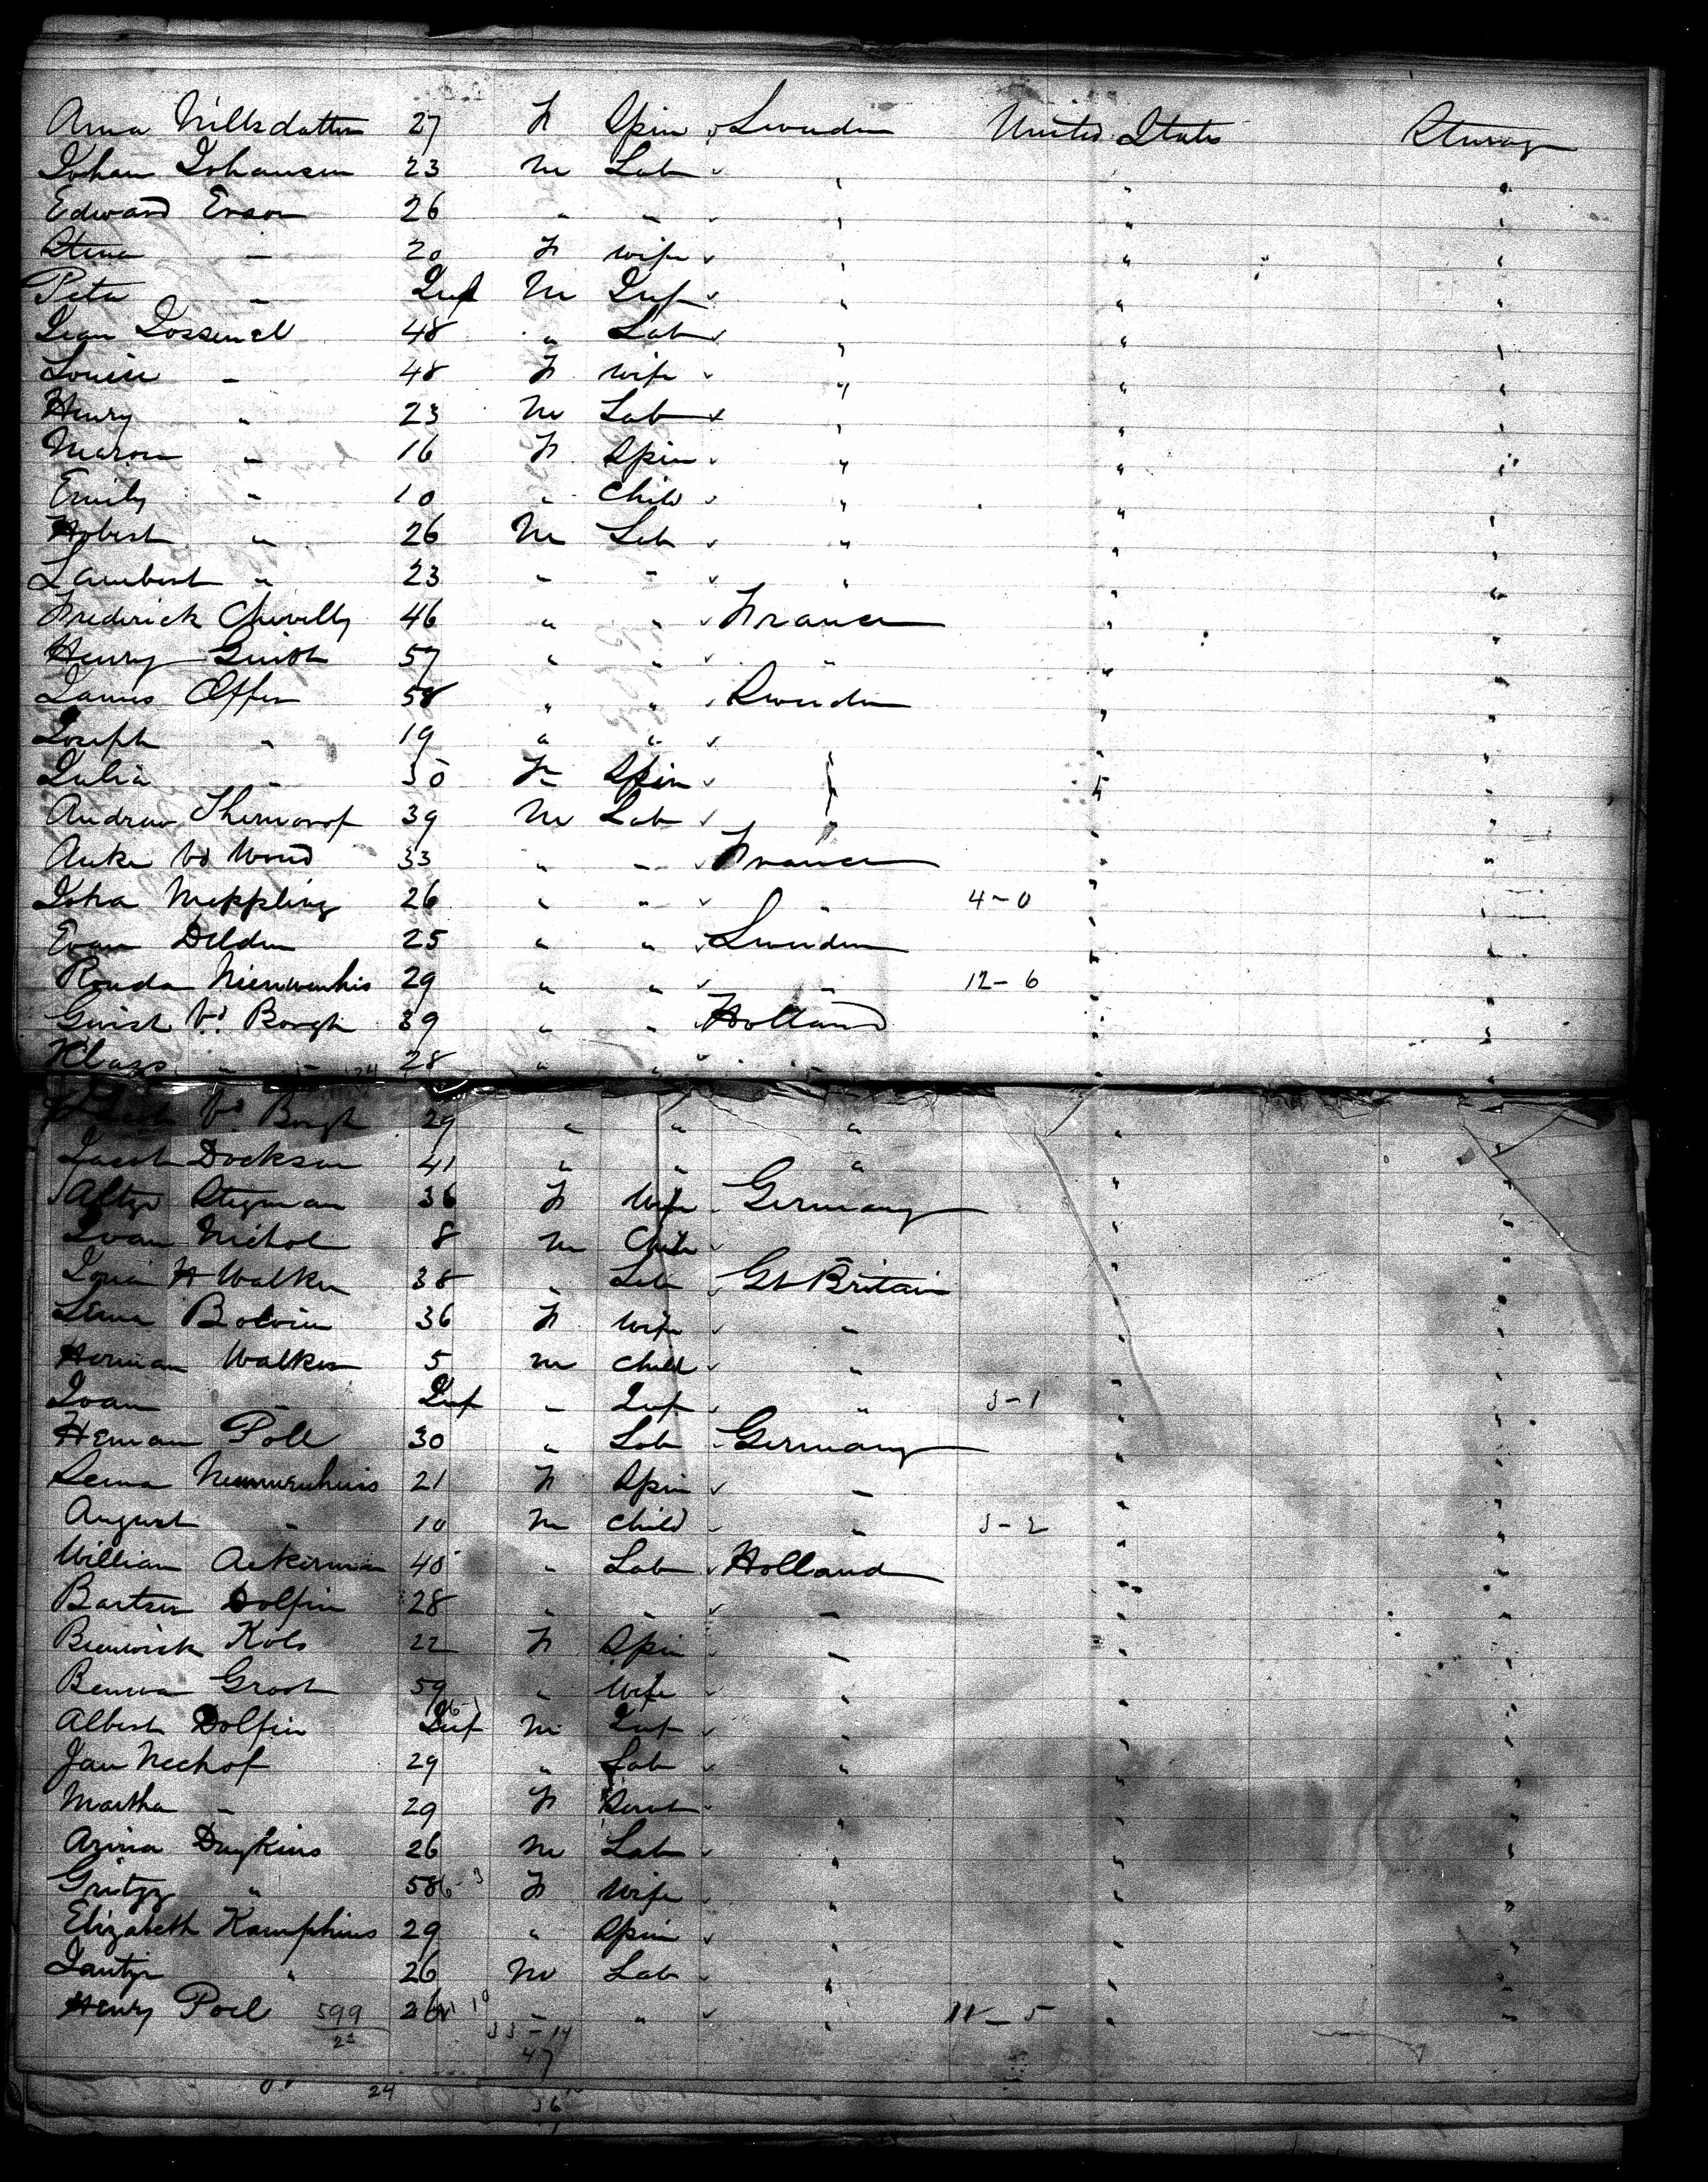 Anna Nillsdatter 27 F Spin Sweden United States Steerage
Johan Johansen 23 M Lab " " "
Edward Erson 26 " " " " "
Stina " 20 F wife " " "
Peter " Inf M Inf " " "
Jean Jossenel 48 " Lab " " "
Louise " 48 F wife " " "
Henry " 23 M Lab " " "
Marou " 16 F Spin " " "
Emily " 10 " child " " "
Hobert " 26 M Lab " " "
Lambert " 23 " " " " "
Frederick Chevilly 46 " " France " "
Henry 57 " " " " "
James Offer 58 " " Sweden " "
Joseph " 19 " " "
Julia " 30 F Spin " "
Andrew 39 M Lab " "
Auke Vd Woud 33 " " France " "
Meppling 26 " " " 4-0 "
Evan Delden 25 " " Sweden " "
Rouda Nieuwenhis 29 " " " 12-6 "
Vd Borgh 39 " " Holland " "
Klaas " 24 28 " " " " "
Vd Borgh 29 " " " " "
Jacob Dockson 41 " " " " "
Altje Stegman 36 F Wife Germany " "
Ivan Nichol 8 M Child " "
H Walker 38 " Lab Gt Britain " "
Lena Bolvin 36 F Wife " " "
Herman Walker 5 M Child " " "
Ivan " Inf " Inf " 3-1 " "
Herman Poll 30 " Lab Germany " "
21 F Spin " " "
August " 10 M child " 3-2 " "
William Ackerman 40 " Lab Holland " "
Bartser Dolfin 28 " " " " "
Kols 22 F Spin " " "
Benwa Groot 59 " Wife " " "
Albert Dolfin Inf M Inf " " "
Jan Nechof 29 " Lab " " "
Martha " 29 F " " "
Arina Duykins 26 M Lab " " "
Grietje " 58 F Wife " " "
Elizabeth Kamphius 29 " Spin " " "
Jantje " 26 M Lab " " "
Henry Poel 599 26 " " " 11-5 " "
23 33-14
47
24
36